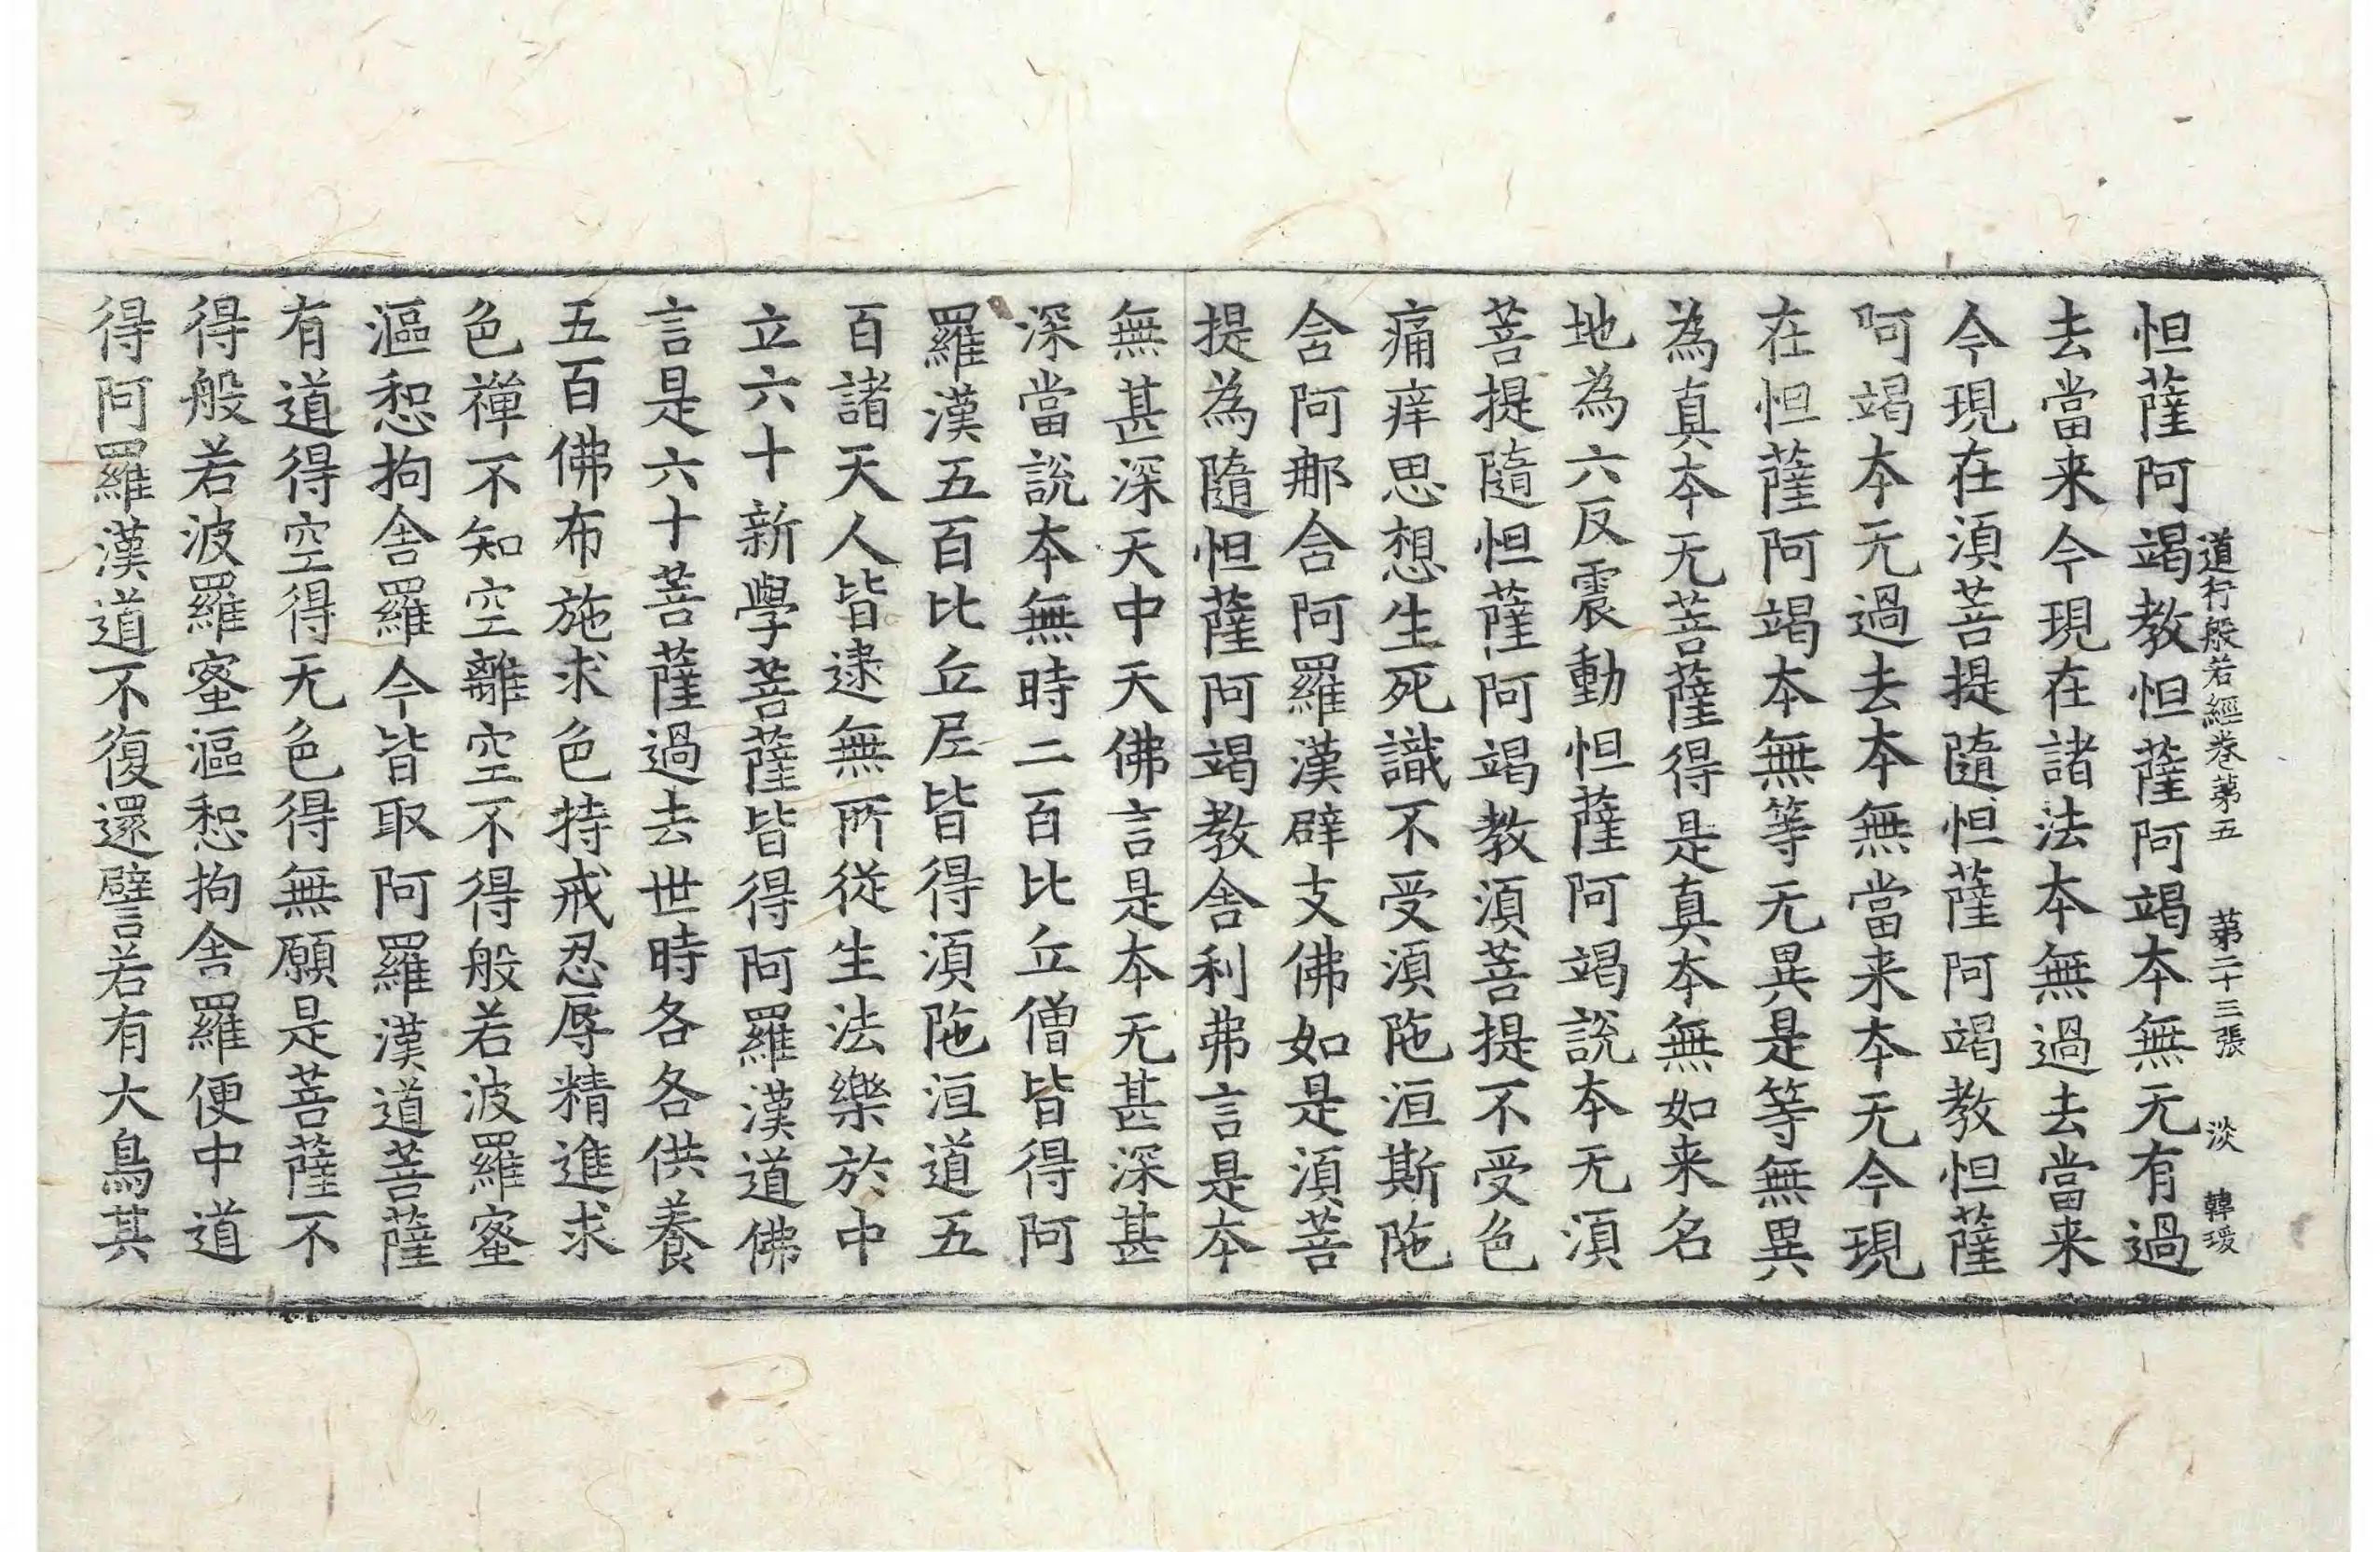 道行般若經卷第五　第二十三張　淡　韓瑗
怛薩阿竭教怛薩阿竭本無无有過
去當来今現在諸法本無過去當来
今現在湏菩提隨怛薩阿竭教怛薩
阿竭本无過去本無當来本无今現
在怛薩阿竭本無等无異是等無異
為真本无菩薩得是真本無如来名
地為六反震動怛薩阿竭說本无湏
菩提隨怛薩阿竭教湏菩提不受色
痛痒思想生死識不受湏陁洹斯陁
含阿那含阿羅漢辟支佛如是湏菩
提為隨怛薩阿竭教舍利弗言是本
無甚深天中天佛言是本无甚深甚
深當說本無時二百比丘僧皆得阿
羅漢五百比丘尼皆得湏陁洹道五
百諸天人皆逮無所從生法樂於中
立六十新學菩薩皆得阿羅漢道佛
言是六十菩薩過去世時各各供養
五百佛布施求色持戒忍辱精進求
色禪不知空離空不得般若波羅蜜
漚惒拘舍羅今皆取阿羅漢道菩薩
有道得空得无色得無願是菩薩不
得般若波羅蜜漚惒拘舍羅便中道
得阿羅漢道不復還譬若有大鳥其